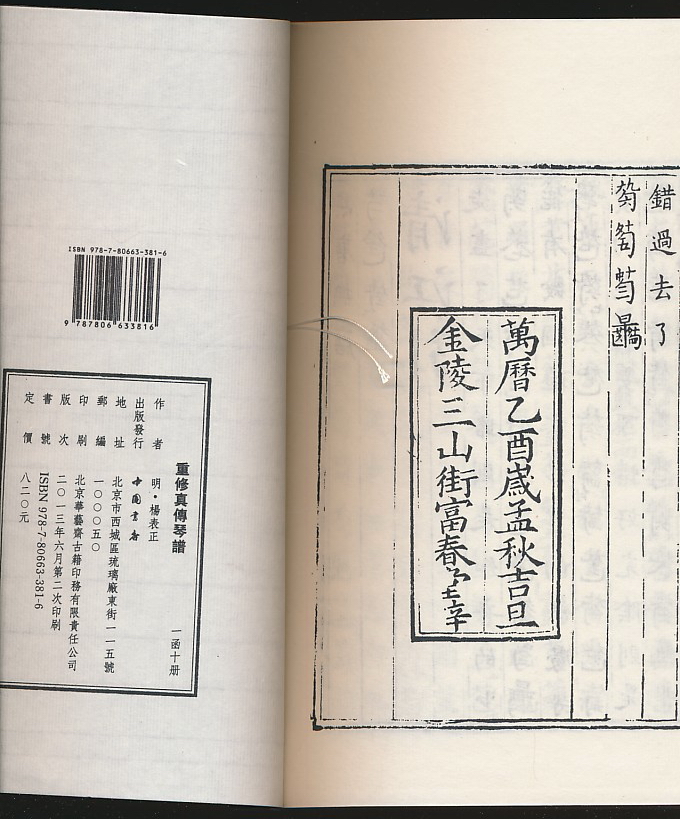 錯過去了
萬曆乙酉嵗孟秋吉旦
金陵三山街富春
ISBN 978-7-80663-381-6
9 787806 633816
重修真傳琴譜 一函十册
作者 明·楊表正
出版發行 中國書店
地址 北京市西城區琉璃廠東街一一五號
郵編 一〇〇〇五〇
印刷 北京華藝齋古籍印務有限責任公司
版次 二〇一三年六月第二次印刷
書號 ISBN 978-7-80663-381-6
定價 八二〇元